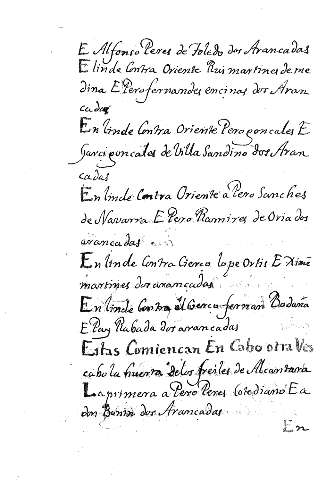 E Alfonso Peres de Toledo dos Arancadas
Elinde Contra Oriente Ruis martines de me
dina E Pero fernandes encinas dos Aran
cadas
En linde Contra Oriente Pero goncales E
Garci goncales de Villa Sandino dos Aran
cadas
En linde Contra Oriente a Pero Sanches
de Navarra E Pero Ramires de Oria dos
arancadas
En linde Contra Cierco lope Ortis E Xime
martines dos arancadas
En linde Contra el Cierco fernan Baduña
E Pay Rabada dos arancadas
Estas Comiencan En Cabo otra Ves
cabo la huerta de los freiles de Alcantara
La primera a Pero Peres Cotediano E a
don Bonin dos Arancadas
En